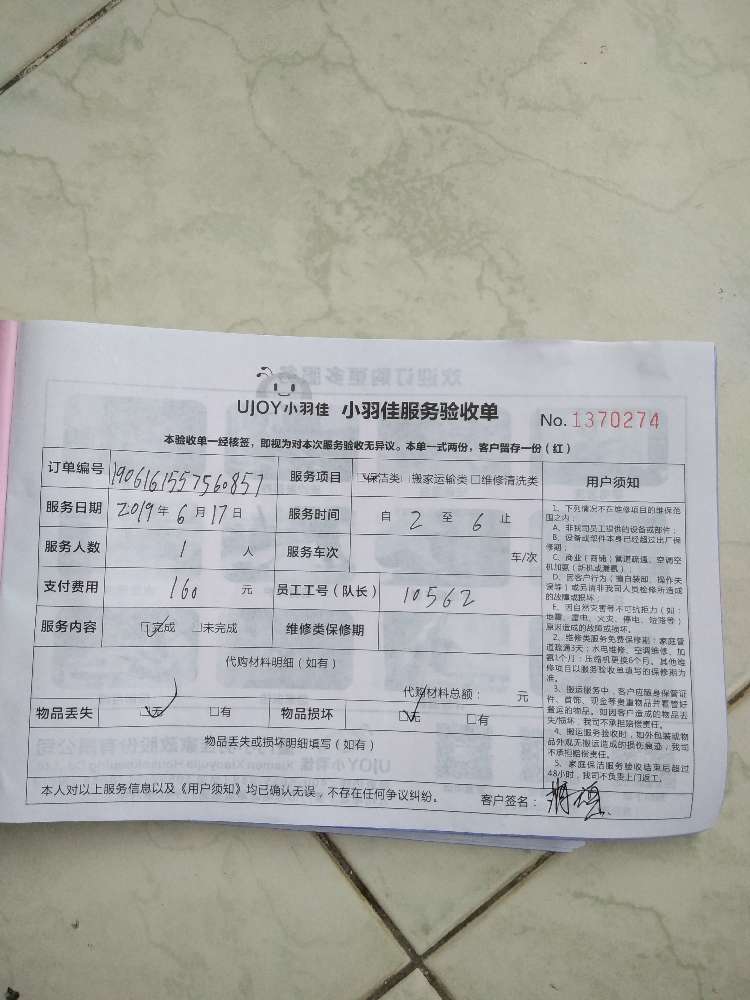 欢迎订购更多服务
UJOY小羽佳 小羽佳服务验收单 No. 1370274
本验收单一经核签，即视为对本次服务验收无异议。本单一式两份，客户留存一份（红）
订单编号 1906161557560857 服务项目 ☑保洁类 □搬家运输类 □维修清洗类 用户须知
服务日期 2019年6月17日 服务时间 自 2 至 6 止
服务人数 1 人 服务车次 车/次
支付费用 160 元 员工工号（队长） 10562
服务内容 ☑完成 □未完成 维修类保修期
代购材料明细（如有）
代购材料总额： 元
物品丢失 ☑无 □有 物品损坏 ☑无 □有
物品丢失或损坏明细填写（如有）
本人对以上服务信息以及《用户须知》均已确认无误，不存在任何争议纠纷。 客户签名：
1、下列情况不在维修项目的维保范
围之内：
A、非我司员工提供的设备或部件；
B、设备或部件本身已经超过出厂保
修期；
C、商业（商铺）管道疏通、空调空
机加氨（新机或漏氨）；
D、因客户行为（擅自装卸、操作失
误等）或另请非我司人员检修所造成
的故障或损坏；
E、因自然灾害等不可抗拒力（如：
地震、雷电、火灾、停电、短路等）
原因造成的故障或损坏。
2、维修类服务免费保修期：家庭管
道疏通3天；水电维修、空调维修、加
氨1个月；压缩机更换6个月。其他维
修项目以服务验收单填写的保修期为
准。
3、搬运服务中，客户应随身保管证
件、首饰、现金等贵重物品并看管好
搬运的物品。如因客户造成的物品丢
失/损坏，我司不承担赔偿责任。
4、搬运服务验收时，如外包装或物
品外观无搬运造成的损伤痕迹，我司
不承担赔偿责任。
5、家庭保洁服务验收结束后超过
48小时，我司不负责上门返工。